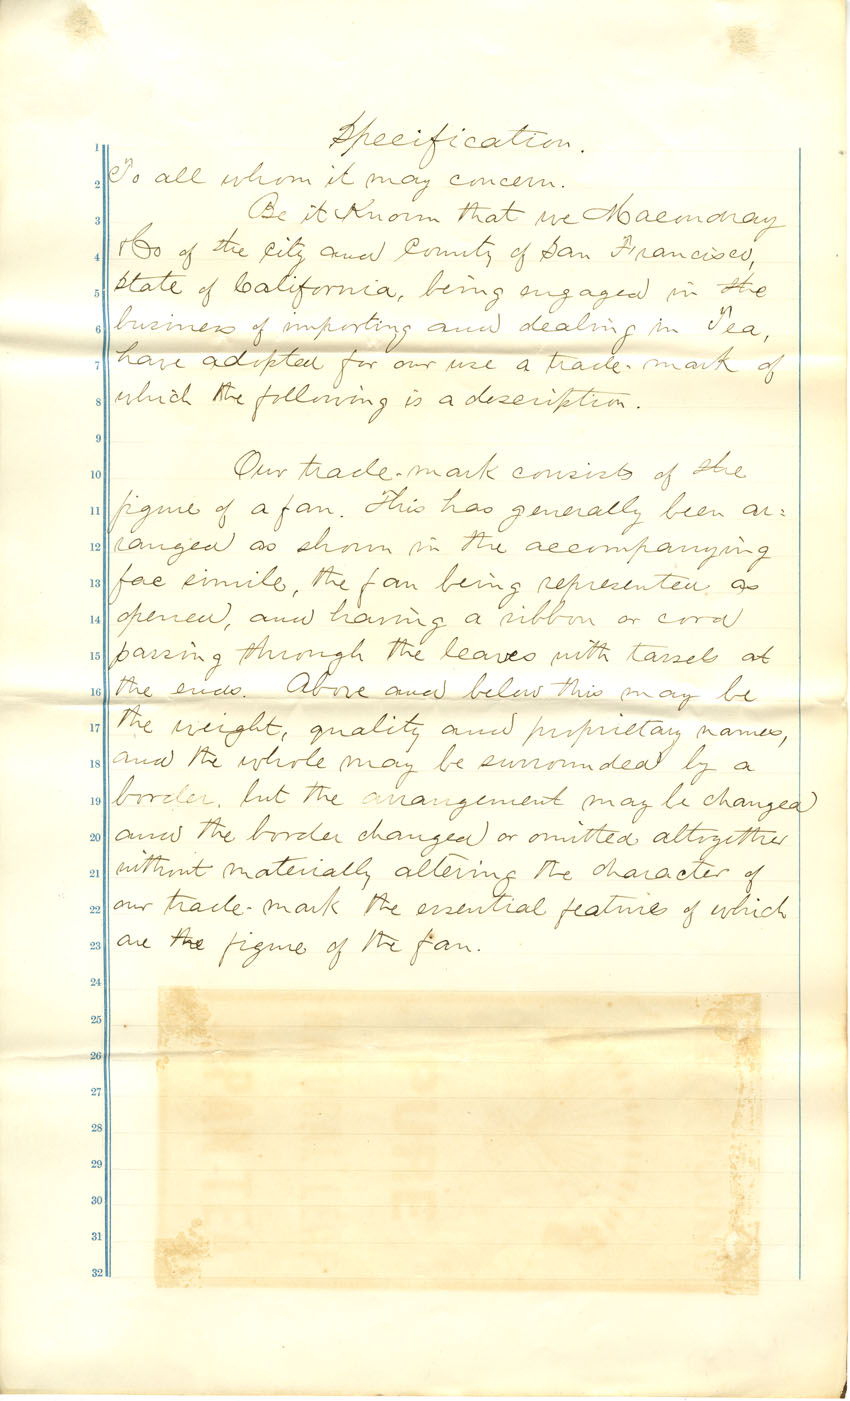 Specification.
1
2 To all whom it may concern.
3 Be it Known that we Macondray
4 & Co of the City and County of San Francisco,
5 State of California, being engaged in the
6 business of importing and dealing in Tea,
7 have adopted for our use a trade-mark of
8 which the following is a description.
9
10 Our trade-mark consists of the
11 figure of a fan. This has generally been ar=
12 ranged as shown in the accompanying
13 fac simile, the fan being represented as
14 opened, and having a ribbon or cord
15 passing through the leaves with tassels at
16 the ends. Above and below this may be
17 the weight, quality and proprietary names,
18 and the whole may be surrounded by a
19 border, but the arrangement may be changed
20 and the border changed or omitted altogether
21 without materially altering the character of
22 our trade-mark the essential features of which
23 are the figure of the fan.
24
25
26
27
28
29
30
31
32
PURE